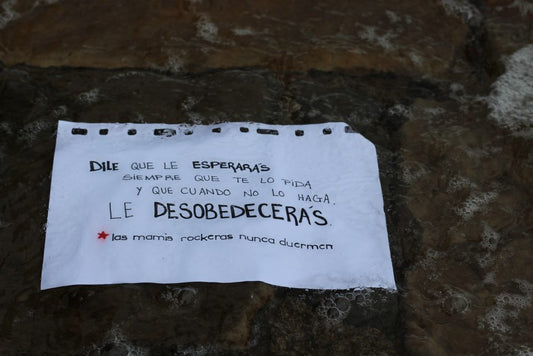 DILE QUE LE ESPERARÁS
SIEMPRE QUE TE LO PIDA
Y QUE CUANDO NO LO HAGA,
LE DESOBEDECERÁS.
* las mamis rockeras nunca duermen